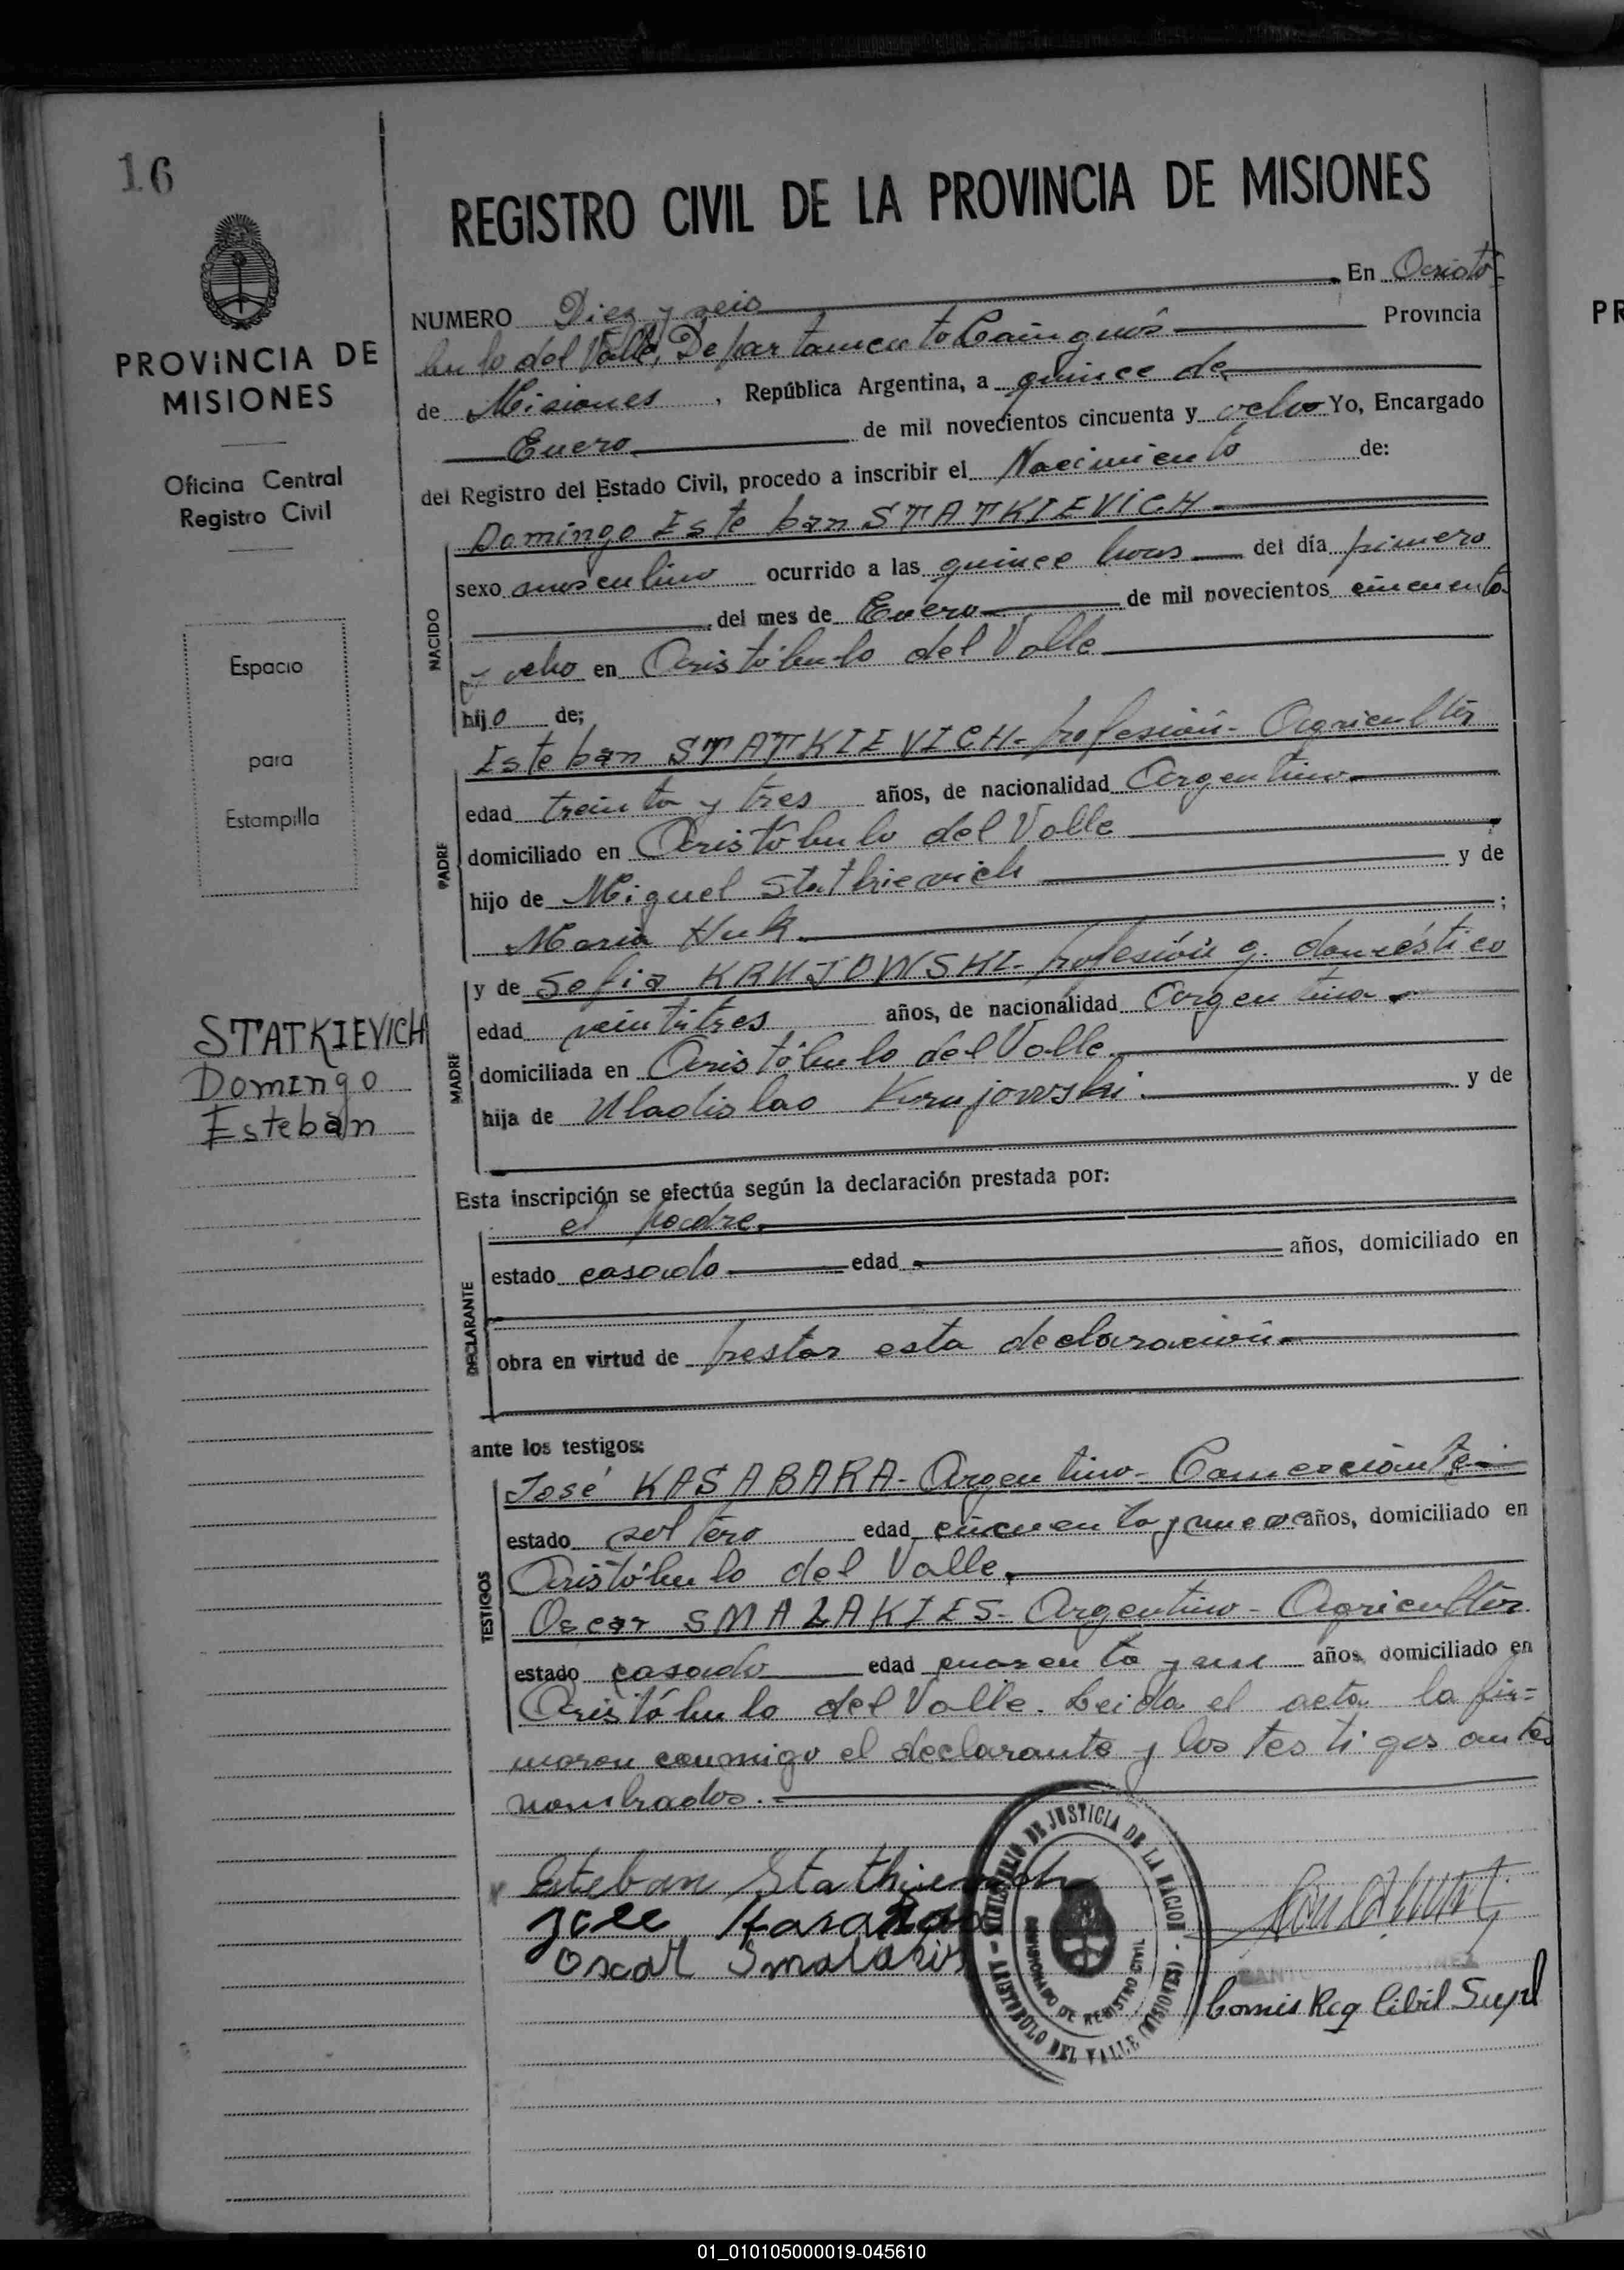 16
PROVINCIA DE
MISIONES
Oficina Central
Registro Civil
Espacio
para
Estampilla
STATKIEVICH
Domingo
Esteban
REGISTRO CIVIL DE LA PROVINCIA DE MISIONES
NUMERO Diez y seis En Aristó-
bulo del Valle, Departamento Cainguás Provincia
de Misiones, República Argentina, a quince de
Enero de mil novecientos cincuenta y ocho Yo, Encargado
del Registro del Estado Civil, procedo a inscribir el Nacimiento de:
NACIDO
Domingo Esteban STATKIEVICH
sexo masculino ocurrido a las quince horas del día primero
del mes de Enero de mil novecientos cincuenta
y ocho en Aristóbulo del Valle
hijo de;
PADRE
Esteban STATKIEVICH- profesión- Agricultor
edad treinta y tres años, de nacionalidad Argentino
domiciliado en Aristóbulo del Valle
hijo de Miguel Statkievich y de
Maria Huk ;
MADRE
y de Sofia KRUJOWSKI- profesión q. doméstico
edad veintitres años, de nacionalidad Argentina
domiciliada en Aristóbulo del Valle
hija de Uladislao Krujowski. y de
Esta inscripción se efectúa según la declaración prestada por:
DECLARANTE
el padre
estado casado edad años, domiciliado en
obra en virtud de prestar esta declaración
ante los testigos:
TESTIGOS
José KASABARA- Argentino- Comerciante
estado soltero edad cincuenta y nueve años, domiciliado en
Aristóbulo del Valle,
Oscar SMALAKIES- Argentino- Agricultor
estado casado edad cuarenta y un años, domiciliado en
Aristóbulo del Valle. Leida el acta la fir=
maron conmigo el declarante y los testigos antes
nombrados.
Esteban Statkievich
Jose
Oscar
MINISTERIO DE JUSTICIA DE LA NACION
COMISIONADO DE REGISTRO CIVIL
ARISTOBULO DEL VALLE (MISIONES)
Comis Reg Cibil Supl
PR
01_010105000019-045610